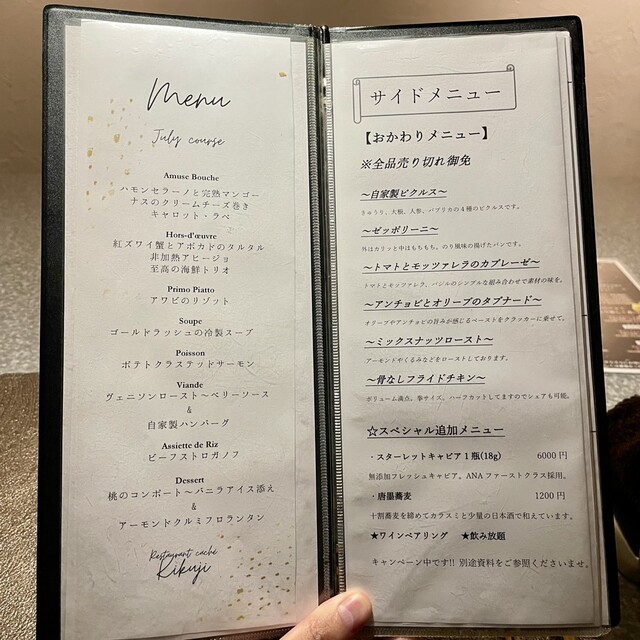 Menu
July course
Amuse Bouche
ハモンセラーノと完熟マンゴー
ナスのクリームチーズ巻き
キャロット・ラペ
Hors-d'œuvre
紅ズワイ蟹とアボカドのタルタル
非加熱アヒージョ
至高の海鮮トリオ
Primo Piatto
アワビのリゾット
Soupe
ゴールドラッシュの冷製スープ
Poisson
ポテトクラステッドサーモン
Viande
ヴェニソンロースト～ベリーソース
&
自家製ハンバーグ
Assiette de Riz
ビーフストロガノフ
Dessert
桃のコンポート～バニラアイス添え
&
アーモンドクルミフロランタン
Restaurant caché
Rikuji
サイドメニュー
【おかわりメニュー】
※全品売り切れ御免
～自家製ピクルス～
きゅうり、大根、人参、パプリカの4種のピクルスです。
～ゼッポリーニ～
外はカリッと中はもちもち。のり風味の揚げたパンです。
～トマトとモッツァレラのカプレーゼ～
トマトとモッツァレラ、バジルのシンプルな組み合わせで素材の味を。
～アンチョビとオリーブのタプナード～
オリーブやアンチョビの旨みが感じるペーストをクラッカーに乗せて。
～ミックスナッツロースト～
アーモンドやくるみなどをローストしております。
～骨なしフライドチキン～
ボリューム満点。拳サイズ。ハーフカットしてますのでシェアも可能。
☆スペシャル追加メニュー
・スターレットキャビア1瓶(18g) 6000円
無添加フレッシュキャビア。ANAファーストクラス採用。
・唐墨蕎麦 1200円
十割蕎麦を締めてカラスミと少量の日本酒で和えています。
★ワインペアリング ★飲み放題
キャンペーン中です!! 別途資料をご参照くださいませ。